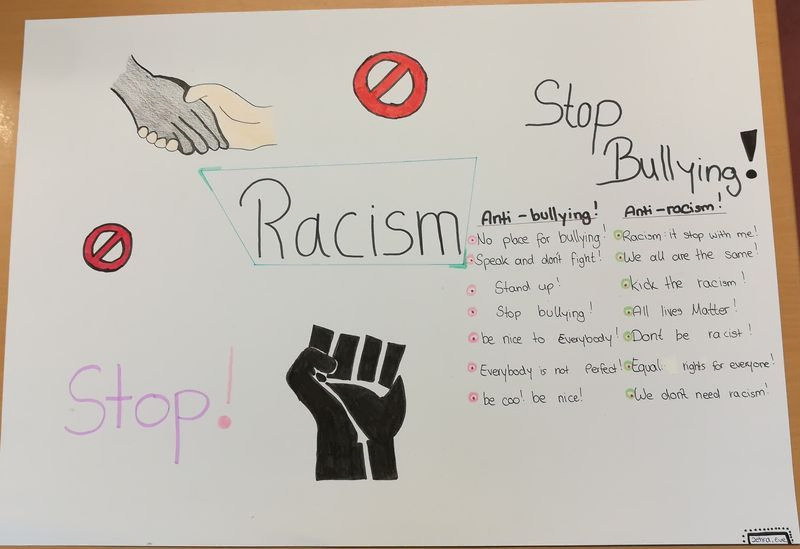 Stop
Bullying!
Racism
Anti-bullying!
No place for bullying!
Speak and don't fight!
Stand up!
Stop bullying!
be nice to Everybody!
Everybody is not Perfect!
be cool be nice!
Anti-racism!
Racism: it stop with me!
We all are the same!
kick the racism!
All lives Matter!
Dont be racist!
Equal rights for everyone!
We don't need racism!
Stop!